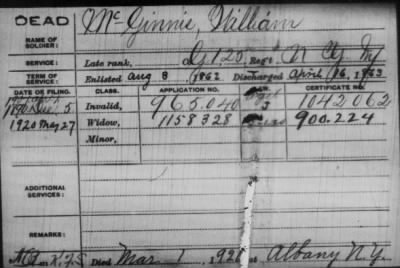 DEAD
Mc Ginnie, William
NAME OF SOLDIER:
SERVICE: Late rank, G 120 Regt. N Y
TERM OF SERVICE: Enlisted Aug 8 1862 Discharged April 16, 1863
DATE OF FILING. CLASS. APPLICATION NO. CERTIFICATE NO.
5 Invalid, 965.040 1042062
1920 May 27 Widow, 1158328 900.224
Minor,
ADDITIONAL SERVICES:
REMARKS:
Died Mar 1, 192 at Albany N.Y.